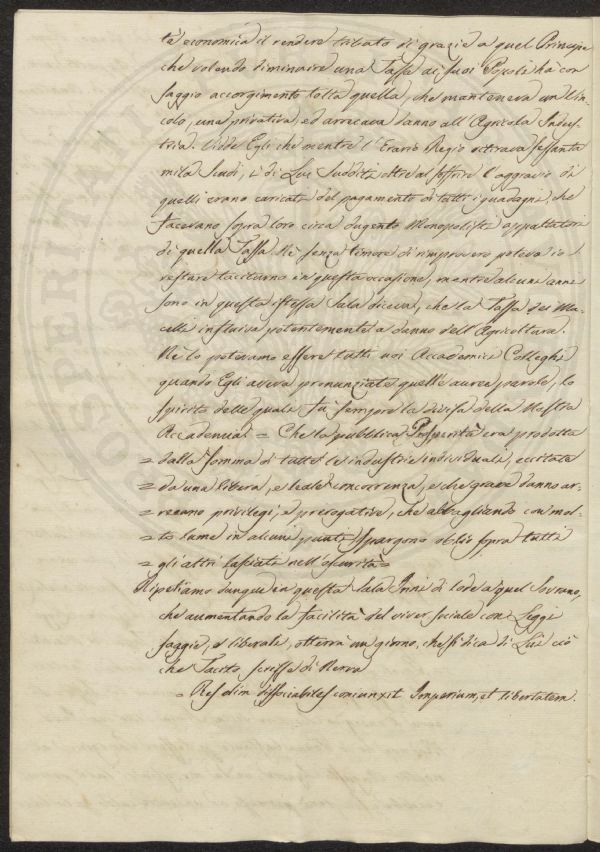 tà economica il rendere tributo di grazie a quel Principe
che volendo diminuire una Tassa ai suoi Popoli hà con
saggio accorgimento tolta quella, che manteneva un Vin-
colo, una privativa, ed arrecava danno all' Agricola Indus-
tria. Vidde Egli che mentre l' Erario Regio ritirava sessanta
mila Scudi, i di Lui Sudditi oltre al soffrire l'aggravio di
quelli erano caricati del pagamento di tutti i guadagni, che
facevano sopra loro circa dugento Monopolisti appaltatori
di quella Tassa. Nè senza timore di rimprovero poteva io
restare taciturno in questa occasione, mentre alcuni anni
sono in questa istessa Sala diceva, che la Tassa dei Ma-
celli influiva potentemente a danno dell' Agricoltura.
Nè lo potevamo essere tutti noi Accademici Colleghi
quando Egli aveva pronunziate quelle auree parole, lo
spirito delle quali fù sempre la divisa della Nostra
Accademia = Che la pubblica Prosperità era prodotta
= dalla somma di tutte le industrie individuali, eccitate
= da una libera, e leale concorrenza, e che grave danno ar-
= recano privilegi, e prerogative, che abbagliando con mol-
= to lume in alcuni punti spargono oblio sopra tutti
= gli altri lasciati nell' oscurità =
Ripetiamo dunque in questa Sala Inni di lode a quel Sovrano,
che aumentando la facilità del viver sociale con Leggi
saggie, e liberali, otterrà un giorno, che si dica di Lui ciò
che Tacito scrisse di Nerva
= Res olim dissociabiles coniunxit Imperium, et libertatem.
OSPEDI